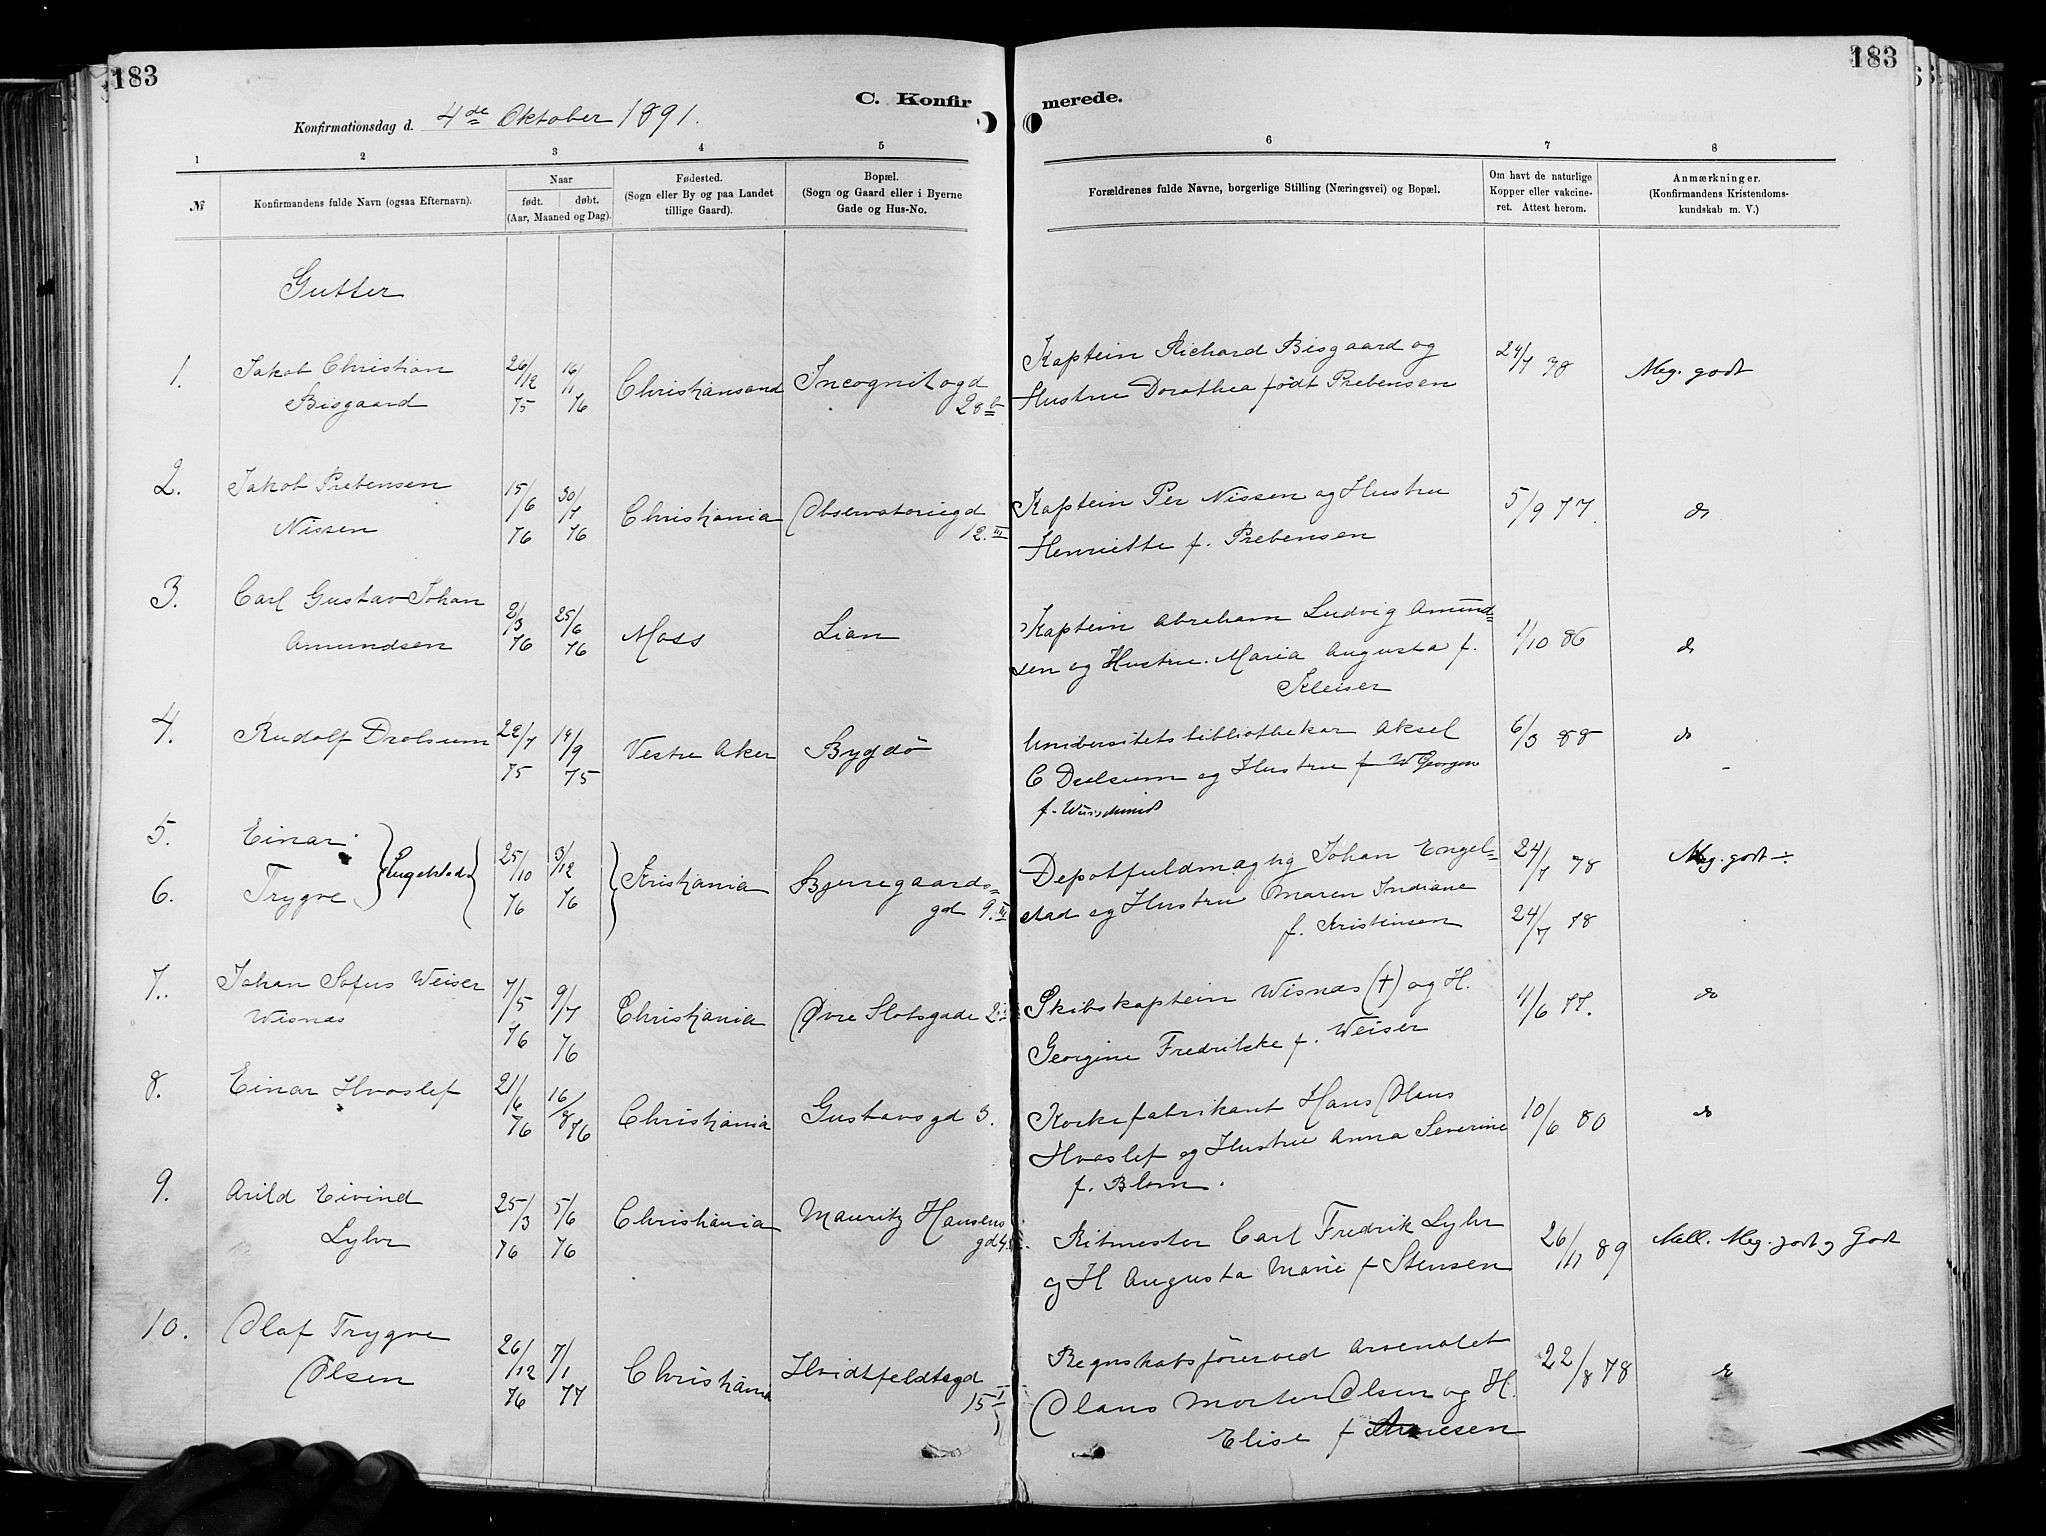 183
183
C. Konfirmerede.
Konfirmationsdag d. 4de Oktober 1891.
1 2 3 4 5 6 7 8
№
Konfirmandens fulde Navn (ogsaa Efternavn).
Naar
født. døbt.
(Aar, Maaned og Dag).
Fødested.
(Sogn eller By og paa Landet
tillige Gaard).
Bopæl.
(Sogn og Gaard eller i Byerne
Gade og Hus-No.
Forældrenes fulde Navne, borgerlige Stilling (Næringsvei) og Bopæl.
Om havt de naturlige
Kopper eller vakcine-
ret. Attest herom.
Anmærkninger.
(Konfirmandens Kristendoms-
kundskab m. V.)
Gutter
1. Jakob Christian
Bisgaard
26/12 75
16/1 76
Christiansand
Incognitogd
28 b
Kaptein Richard Bisgaard og
Hustru Dorothea født Prebensen
24/7 78
Meg. godt
2. Jakob Prebensen
Nissen
15/6 76
30/7 76
Christiania
Observatoriegd
12. III
Kaptein Per Nissen og Hustru
Henriette f. Prebensen
5/9 77.
do
3. Carl Gustav Johan
Amundsen
2/3 76
25/6 76
Moss
Lian
Kaptein Abraham Ludvig Amund=
sen og Hustru Maria Augusta f.
Kleiser
1/10 86
do
4. Rudolf Drolsum
22/7 75
14/9 75
Vestre Aker
Bygdö
Universitetsbibliothekar Aksel
C Drolsum og Hustru f W Georgen
6/3 88
do
5. Einar
6. Trygve
Engelstad
25/10 76
3/12 76
Kristiania
Bjerregaards=
gd 9. III
Depotfuldmægtig Johan Engel=
stad og Hustru Maren Indiane
f. Kristensen
24/7 78
24/7 78
Meg. godt ÷
7. Johan Sofus Weiser
Wisnæs
7/5 76
9/7 76
Christiania
Øvre Slotsgade 2
Skibskaptein Wisnæs (+) og H.
Georgine Fredrikke f. Weiser
4/6 77.
do
8. Einar Hvoslef
21/6 76
16/8 76
Christiania
Gustavsgd 3.
Korkefabrikant Hans Olaus
Hvoslef og Hustru Anna Severine
f. Blom.
10/6 80
do
9. Arild Eivind
Lyhr
25/3 76
5/6 76
Christiania
Mauritz Hansens
gd 4
Ritmester Carl Fredrik Lyhr
og H Augusta Marie f Stensen
26/11 89
Mell. Meg. godt og Godt
10. Olaf Trygve
Olsen
26/12 76
7/1 77
Christiania
Hvidtfeldtsgd
15 I
Regnskabsfører ved Arsenalet
Olaus Morten Olsen og H.
Elise f
22/8 78
do